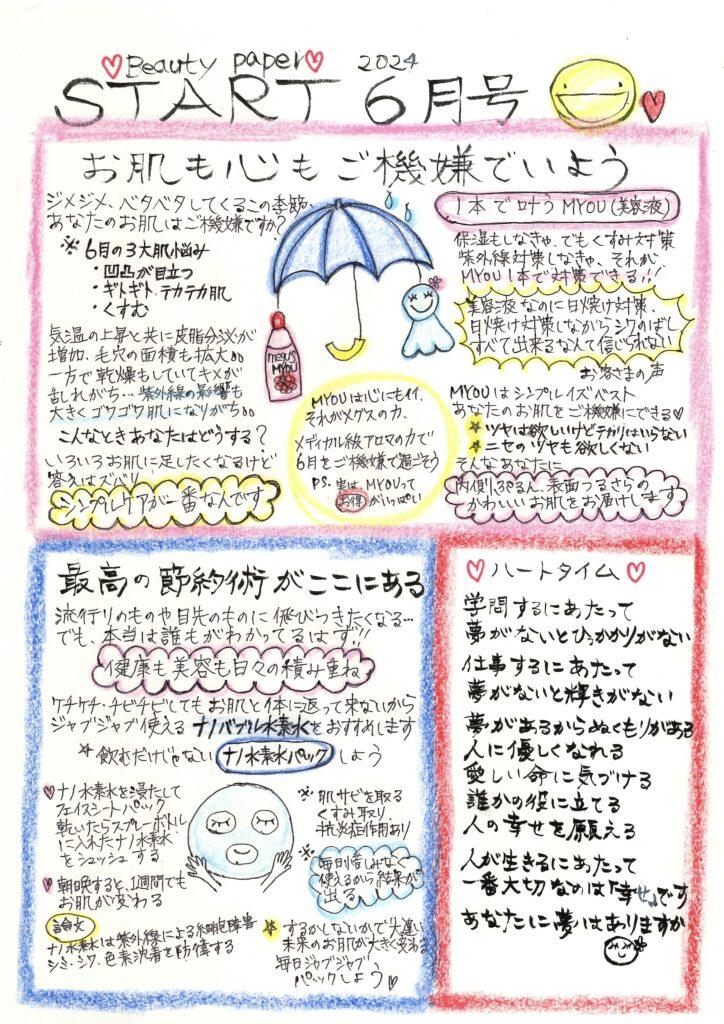 Beauty paper
2024
START 6月号
お肌も心もご機嫌でいよう
ジメジメ、ベタベタしてくるこの季節、
あなたのお肌はご機嫌ですか?
※6月の3大肌悩み
・凹凸が目立つ
・ギトギト・テカテカ肌
・くすむ
気温の上昇と共に皮脂分泌が
増加、毛穴の面積も拡大。。
一方で乾燥もしていてキメが
乱れがち…紫外線の影響も
大きくゴワゴワ肌になりがち。。
こんなときあなたはどうする?
いろいろお肌に足したくなるけど
答えはズバリ
シンプルケアが一番なんです
megus
MYOU
MYOUは心にもイイ、
それがメグスの力、
メディカル級アロマの力で
6月をご機嫌で過ごそう
PS. 実は、MYOUって
お得がいっぱい
1本で叶うMYOU(美容液)
保湿もしなきゃ、でもくすみ対策
紫外線対策しなきゃ、それが
MYOU1本で対策できる!!
美容液なのに日焼け対策、
日焼け対策しながらシワのばし
すべて出来るなんて信じられない
お客さまの声
MYOUはシンプルイズベスト
あなたのお肌をご機嫌にできる♡
★ツヤは欲しいけどテカリはいらない
★ニセのツヤも欲しくない
そんなあなたに
内側ぷるん、表面つるさらの
かわいいお肌をお届けします
最高の節約術がここにある
流行りのものや目先のものに飛びつきたくなる…
でも、本当は誰もがわかってるはず!!
健康も美容も日々の積み重ね
ケチケチ・チビチビしてもお肌と体に返って来ないから
ジャブジャブ使えるナノバブル水素水をおすすめします
★飲むだけじゃない ナノ水素水パック しよう
♡ナノ水素水を浸たして
フェイスシートパック
乾いたらスプレーボトル
に入れたナノ水素水
をシュッシュする
♡朝晩すると、1週間でも
お肌が変わる
論文
ナノ水素水は紫外線による細胞障害
シミ・シワ、色素沈着を防御する
※肌サビを取る
くすみ取り
抗炎症作用あり
毎日惜しみなく
使えるから結果が
出る
★するかしないかで大違い
未来のお肌が大きく変わる
毎日ジャブジャブ、
パックしよう♡
♡ハートタイム♡
学問するにあたって
夢がないとひっかかりがない
仕事するにあたって
夢がないと輝きがない
夢があるからぬくもりがある
人に優しくなれる
愛しい命に気づける
誰かの役に立てる
人の幸せを願える
人が生きるにあたって
一番大切なのは「幸せ」です
あなたに夢はありますか